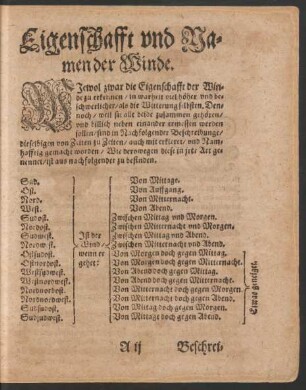 Eigenschafft vnd Na-
men der Winde.
WJewol zwar die Eigenschafft der Win-
de zu erkennen / in warheit viel höher vnd be-
schwerlicher / als die Witterung selbsten, Den-
noch / weil sie alle beide zusammen gehören /
vnd billich neben einander
sollen / sind in Nachfolgender Beschreibunge /
dieselbigen von Zeiten zu Zeiten / auch mit erkleret, vnd Nam-
hafftig gemacht worden / Wie derowegen diese in jrer Art ge-
nennet / ist aus nachfolgender zu befinden.
Sud. Von Mittage.
Ost. Von Auffgang.
Nord. Von Mitternacht.
West. Von Abend.
Sudost. Zwischen Mittag vnd Morgen.
Nordost. Zwischen Mitternacht vnd Morgen.
Sudwest. Zwischen Mittag vnd Abend.
Nordwest. Zwischen Mitternacht vnd Abend.
Ostsudost. Von Morgen doch gegen Mittag.
Ostnordost. Von Morgen doch gegen Mitternacht.
Westsudwest. Von Abend doch gegen Mittag.
Westnordwest. Von Abend doch gegen Mitternacht.
Nordnordost. Von Mitternacht doch gegen Morgen.
Nordnordwest. Von Mitternacht doch gegen Abend.
Sudsudost. Von Mittag doch gegen Morgen.
Sudsudwest. Von Mittage doch gegen Abend.
Ist der
Wind /
wenn er
gehet:
Etwas geneiget.
A ij Beschrei-